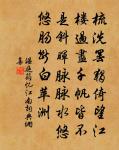 梳洗罷獨倚望江
樓過盡千帆皆不
是斜暉脈脈水
悠悠腸斷白蘋洲
憶江南詞